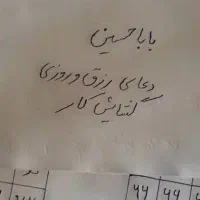 بابا حسین
دعای رزق و روزی
گشایش کار
۶۶ ۶۶